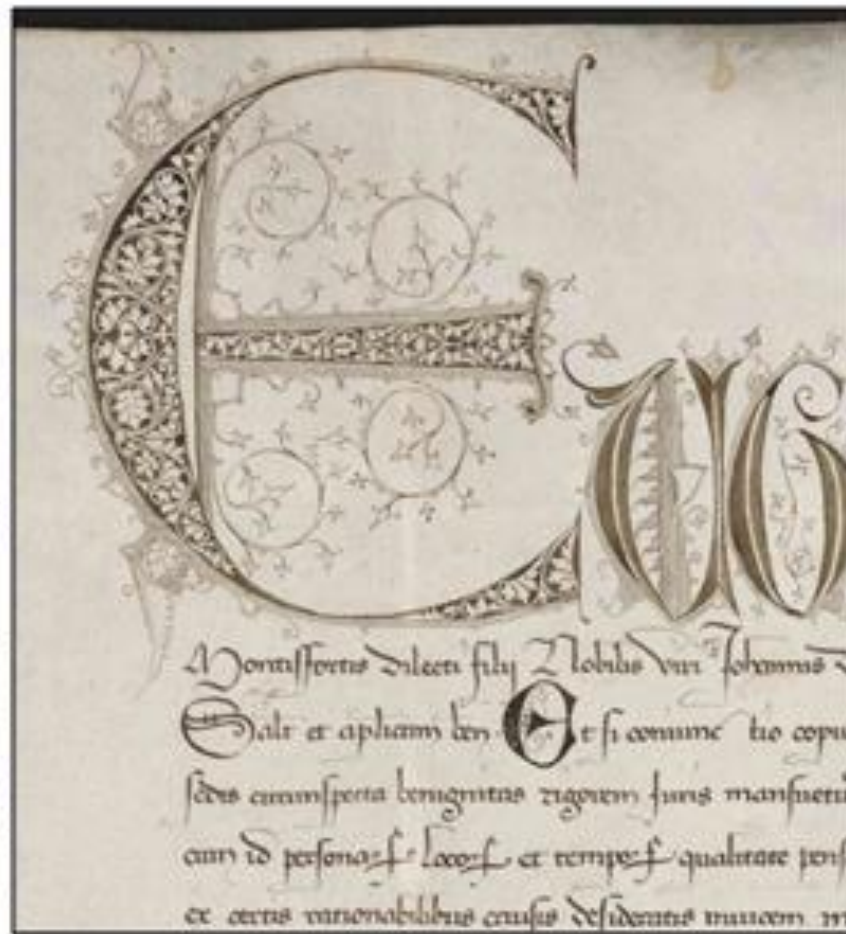 EUG
Montisfortis dilecti filij Nobilis viri Johannis
Salt et aplicam ben Et si coniunc tio copu
sedis circumspecta benignitas rigorem juris mansuetu
cum id personaꝝ locoꝝ et tempoꝝ qualitate pens
ex certis rationabilibus causis desideratis invicem m